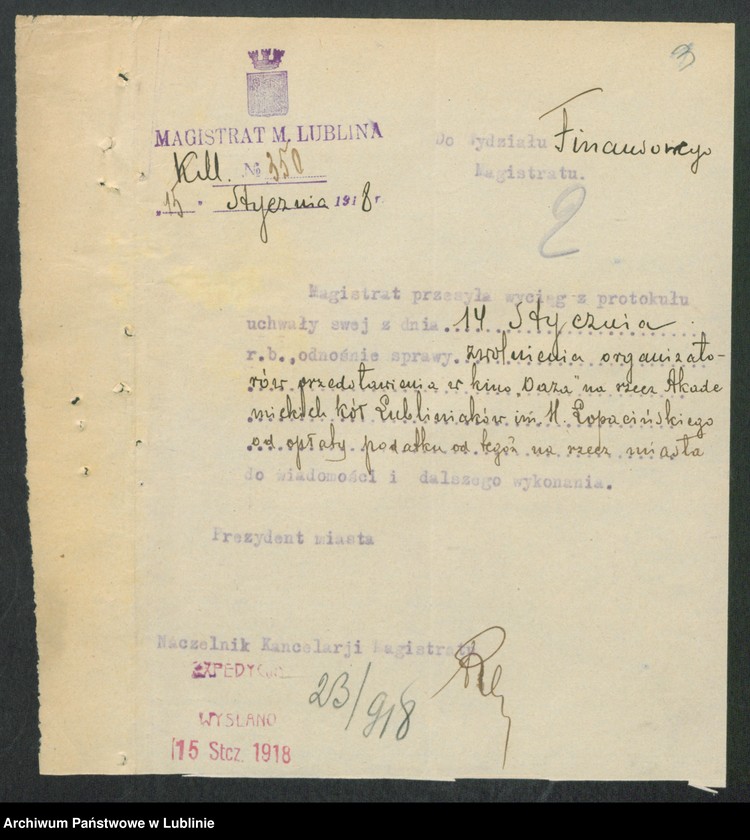 3
MAGISTRAT M. LUBLINA
№ 350
15 Stycznia 1918 r.
Do Wydziału Finansowego
Magistratu.
2
Magistrat przesyła wyciąg z protokułu
uchwały swej z dnia 14 Stycznia
r.b., odnośnie sprawy zwolnienia organizato-
rów przedstawienia w kino "Oaza" na rzecz Akade
mickich kół Lubliniaków im. H. Łopacińskiego
od opłaty podatku od tegóż na rzecz miasta
do wiadomości i dalszego wykonania.
Prezydent miasta
Naczelnik Kancelarji Magistratu
EXPEDYCJA
WYSŁANO
15 Stcz. 1918
23/918
Archiwum Państwowe w Lublinie